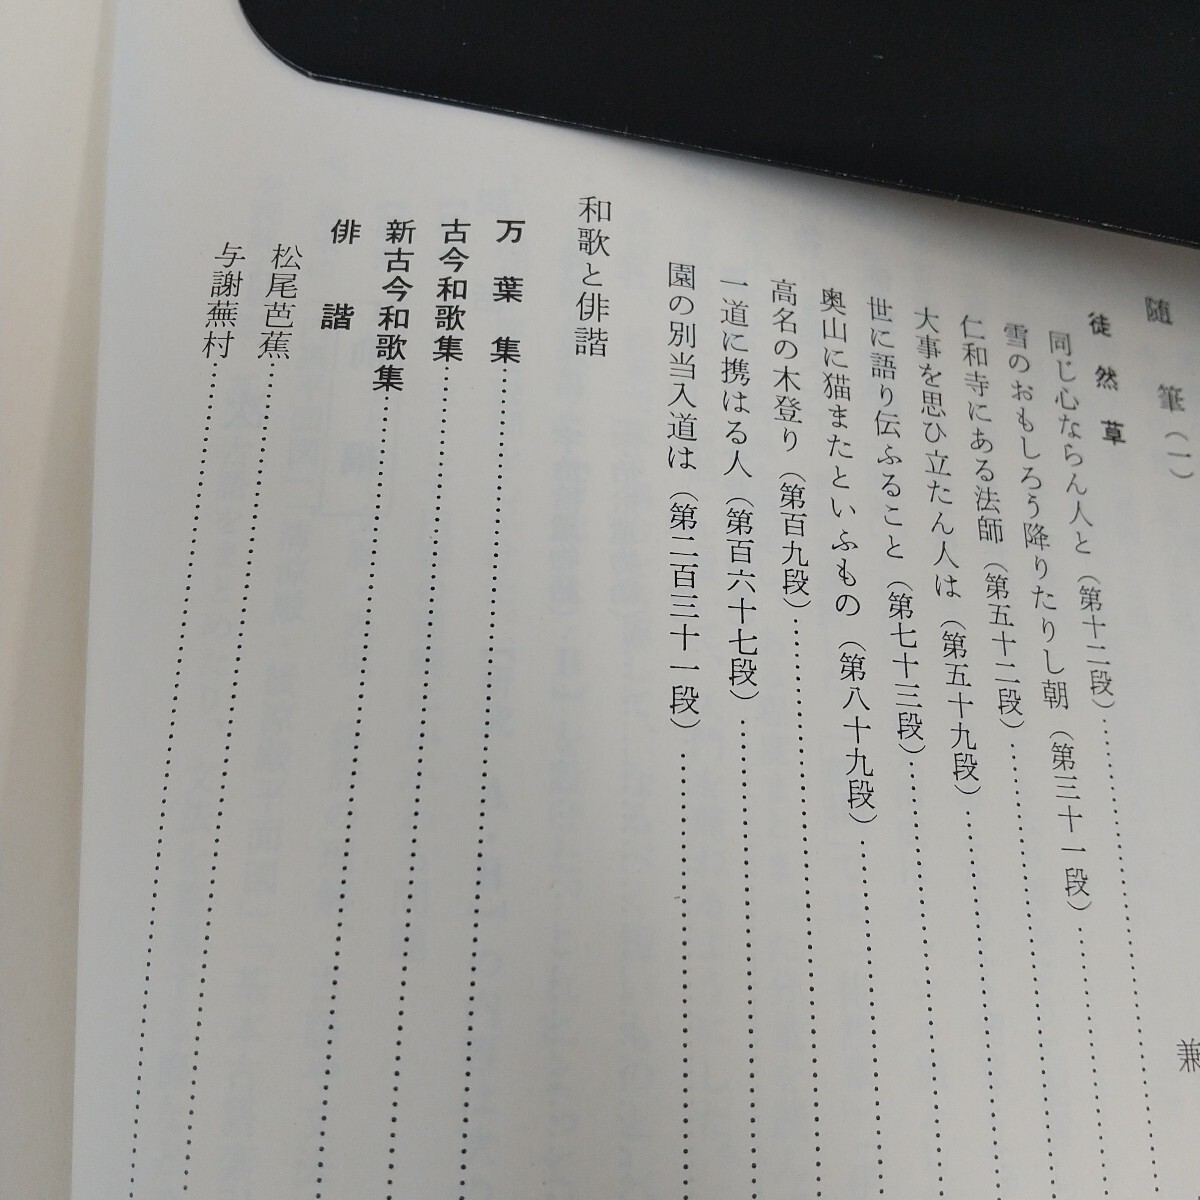 随筆(一)
徒然草
兼
同じ心ならん人と(第十二段)
雪のおもしろう降りたりし朝(第三十一段)
仁和寺にある法師(第五十二段)
大事を思ひ立たん人は(第五十九段)
世に語り伝ふること(第七十三段)
奥山に猫またといふもの(第八十九段)
高名の木登り(第百九段)
一道に携はる人(第百六十七段)
園の別当入道は(第二百三十一段)
和歌と俳諧
万葉集
古今和歌集
新古今和歌集
俳諧
松尾芭蕉
与謝蕪村